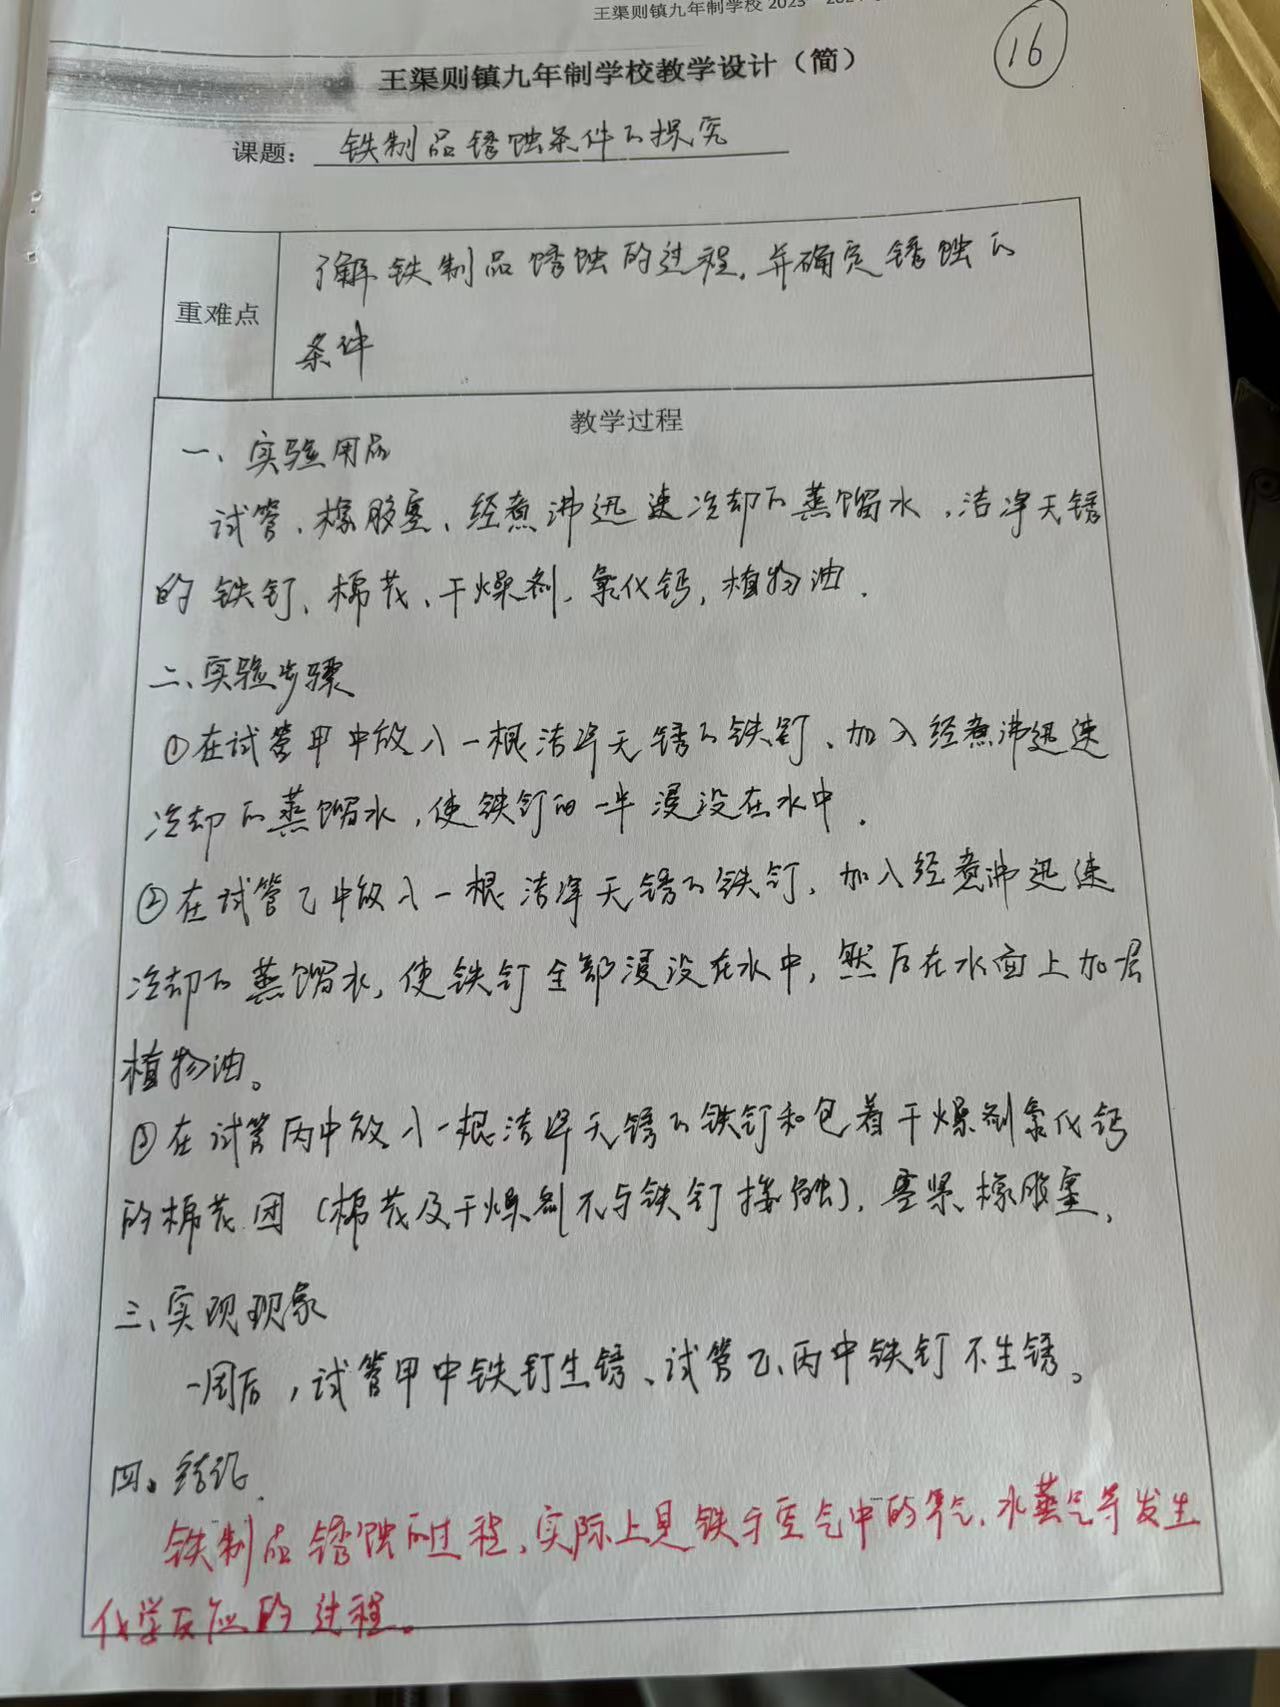 王渠则镇九年制学校 2023
16
王渠则镇九年制学校教学设计（简）
课题：铁制品锈蚀条件的探究
重难点
了解铁制品锈蚀的过程，并确定锈蚀的
条件
教学过程
一、实验用品
试管、橡胶塞、经煮沸迅速冷却的蒸馏水，洁净无锈
的铁钉、棉花、干燥剂、氯化钙，植物油．
二、实验步骤
①在试管甲中放入一根洁净无锈的铁钉、加入经煮沸迅速
冷却的蒸馏水，使铁钉的一半浸没在水中．
②在试管乙中放入一根洁净无锈的铁钉，加入经煮沸迅速
冷却的蒸馏水，使铁钉全部浸没在水中，然后在水面上加层
植物油。
③在试管丙中放入一根洁净无锈的铁钉和包着干燥剂氯化钙
的棉花团（棉花及干燥剂不与铁钉接触），塞紧橡胶塞，
三、实现现象
一周后，试管甲中铁钉生锈、试管乙、丙中铁钉不生锈。
四、结论
铁制品锈蚀的过程，实际上是铁与空气中的氧气、水蒸气等发生
化学反应的过程。